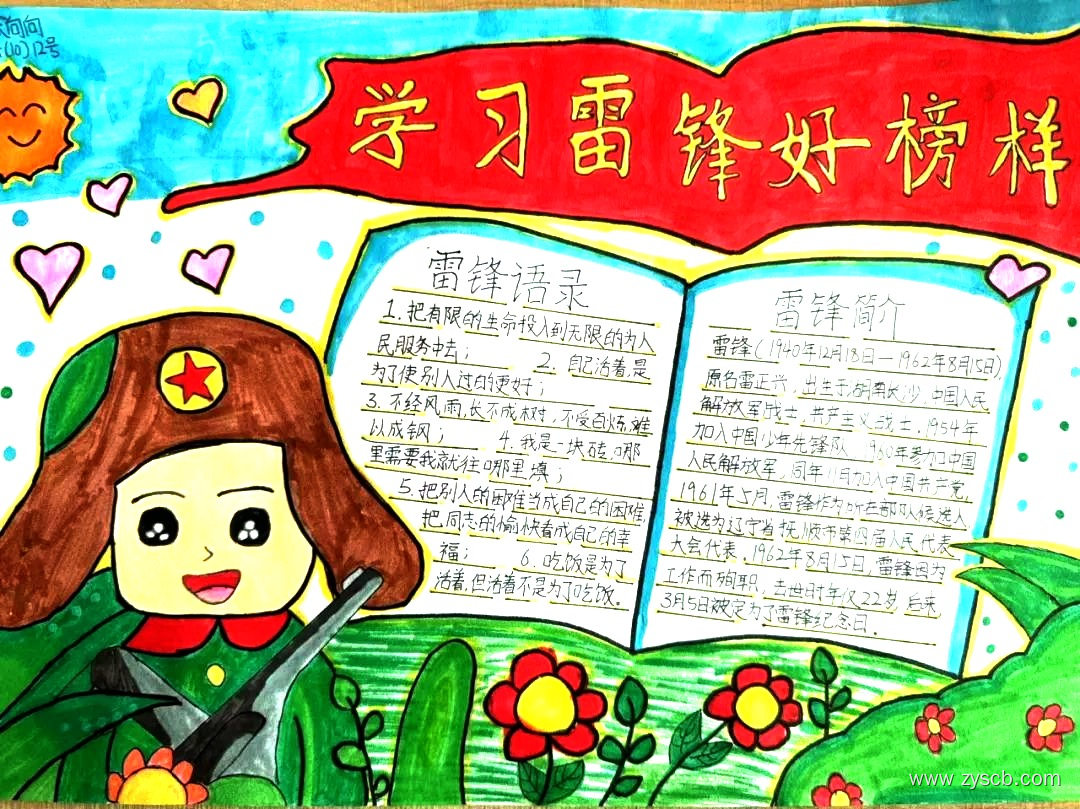 向向
(10)12号
学习雷锋好榜样
雷锋语录
1.把有限的生命投入到无限的为人
民服务中去； 2.自己活着,是
为了使别人过的更好；
3.不经风雨,长不成树,不受百炼,难
以成钢； 4.我是一块砖,哪
里需要我就往哪里填；
5.把别人的困难当成自己的困难,
把同志的愉快看成自己的幸
福； 6.吃饭是为了
活着,但活着不是为了吃饭.
雷锋简介
雷锋(1940年12月18日—1962年8月15日),
原名雷正兴,出生于湖南长沙,中国人民
解放军战士,共产主义战士,1954年
加入中国少年先锋队,1960年参加中国
人民解放军,同年11月加入中国共产党,
1961年5月,雷锋作为所在部队候选人
被选为辽宁省抚顺市第四届人民代表
大会代表,1962年8月15日,雷锋因为
工作而殉职,去世时年仅22岁,后来,
3月5日被定为了雷锋纪念日.
www.zyscb.com